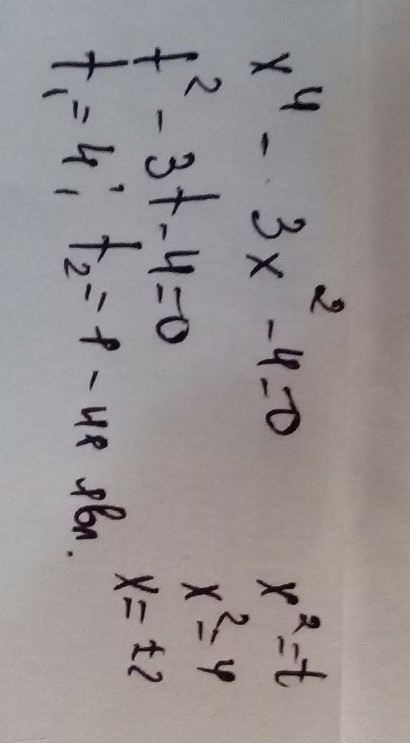 x⁴ - 3x² - 4 = 0
x² = t
t² - 3t - 4 = 0
x² = 4
t₁ = 4; t₂ = -1 - не явл.
x = ±2